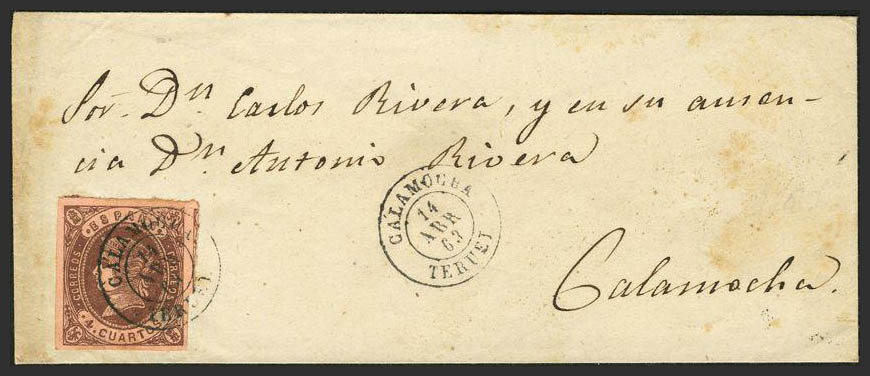 Sor. Dn Carlos Rivera, y en su ausen-
cia Dn Antonio Rivera
Calamocha.
CALAMOCHA
14
ABR
63
TERUEL
ESPAÑA
CORREOS
4. CUARTOS
CALAMOCHA
TERUEL